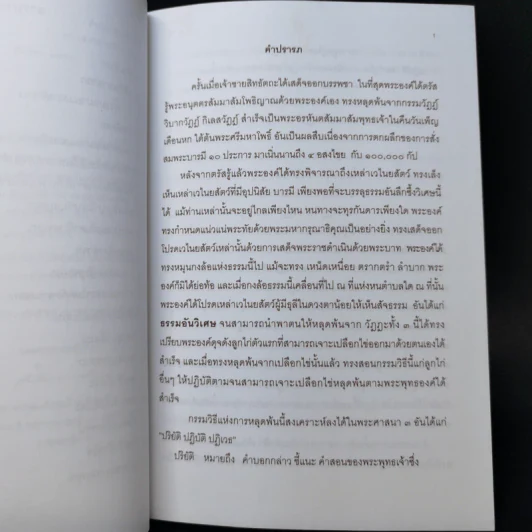 ๑
คำปรารภ
ครั้นเมื่อเจ้าชายสิทธัตถะได้เสด็จออกบรรพชา ในที่สุดพระองค์ได้ตรัส
รู้พระอนุตตรสัมมาสัมโพธิญาณด้วยพระองค์เอง ทรงหลุดพ้นจากกรรมวัฏฏ์
วิบากวัฏฏ์ กิเลสวัฏฏ์ สำเร็จเป็นพระอรหันตสัมมาสัมพุทธเจ้าในคืนวันเพ็ญ
เดือนหก ใต้ต้นพระศรีมหาโพธิ์ อันเป็นผลสืบเนื่องจากการตกผลึกของการสั่ง
สมพระบารมี ๑๐ ประการ มาเนิ่นนานถึง ๔ อสงไขย กับ ๑๐๐,๐๐๐ กัป
หลังจากตรัสรู้แล้วพระองค์ได้ทรงพิจารณาถึงเหล่าเวไนยสัตว์ ทรงเล็ง
เห็นเหล่าเวไนยสัตว์ที่มีอุปนิสัย บารมี เพียงพอที่จะบรรลุธรรมอันลึกซึ้งวิเศษนี้
ได้ แม้ท่านเหล่านั้นจะอยู่ไกลเพียงไหน หนทางจะทุรกันดารเพียงใด พระองค์
ทรงกำหนดแน่วแน่พระทัยด้วยพระมหากรุณาธิคุณเป็นอย่างยิ่ง ทรงเสด็จออก
โปรดเวไนยสัตว์เหล่านั้นด้วยการเสด็จพระราชดำเนินด้วยพระบาท พระองค์ได้
ทรงหมุนกงล้อแห่งธรรมนี้ไป แม้จะทรง เหนิดเหนื่อย ตรากตรำ ลำบาก พระ
องค์ก็มิได้ย่อท้อ และเมื่อกงล้อธรรมนี้เคลื่อนที่ไป ณ ที่แห่งหนตำบลใด ณ ที่นั้น
พระองค์ได้โปรดเหล่าเวไนยสัตว์ผู้มีธุลีในดวงตาน้อยให้เห็นสัจธรรม อันได้แก่
ธรรมอันวิเศษ จนสามารถนำพาตนให้หลุดพ้นจาก วัฏฏะทั้ง ๓ นี้ได้ทรง
เปรียบพระองค์ดุจดังลูกไก่ตัวแรกที่สามารถเจาะเปลือกไข่ออกมาด้วยตนเองได้
สำเร็จ และเมื่อทรงหลุดพ้นจากเปลือกไข่นั้นแล้ว ทรงสอนกรรมวิธีนี้แก่ลูกไก่
อื่นๆ ให้ปฏิบัติตามจนสามารถเจาะเปลือกไข่หลุดพ้นตามพระพุทธองค์ได้
สำเร็จ
กรรมวิธีแห่งการหลุดพ้นนี้สงเคราะห์ลงได้ในพระศาสนา ๓ อันได้แก่
"ปริยัติ ปฏิบัติ ปฏิเวธ"
ปริยัติ หมายถึง คำบอกกล่าว ชี้แนะ คำสอนของพระพุทธเจ้าซึ่ง